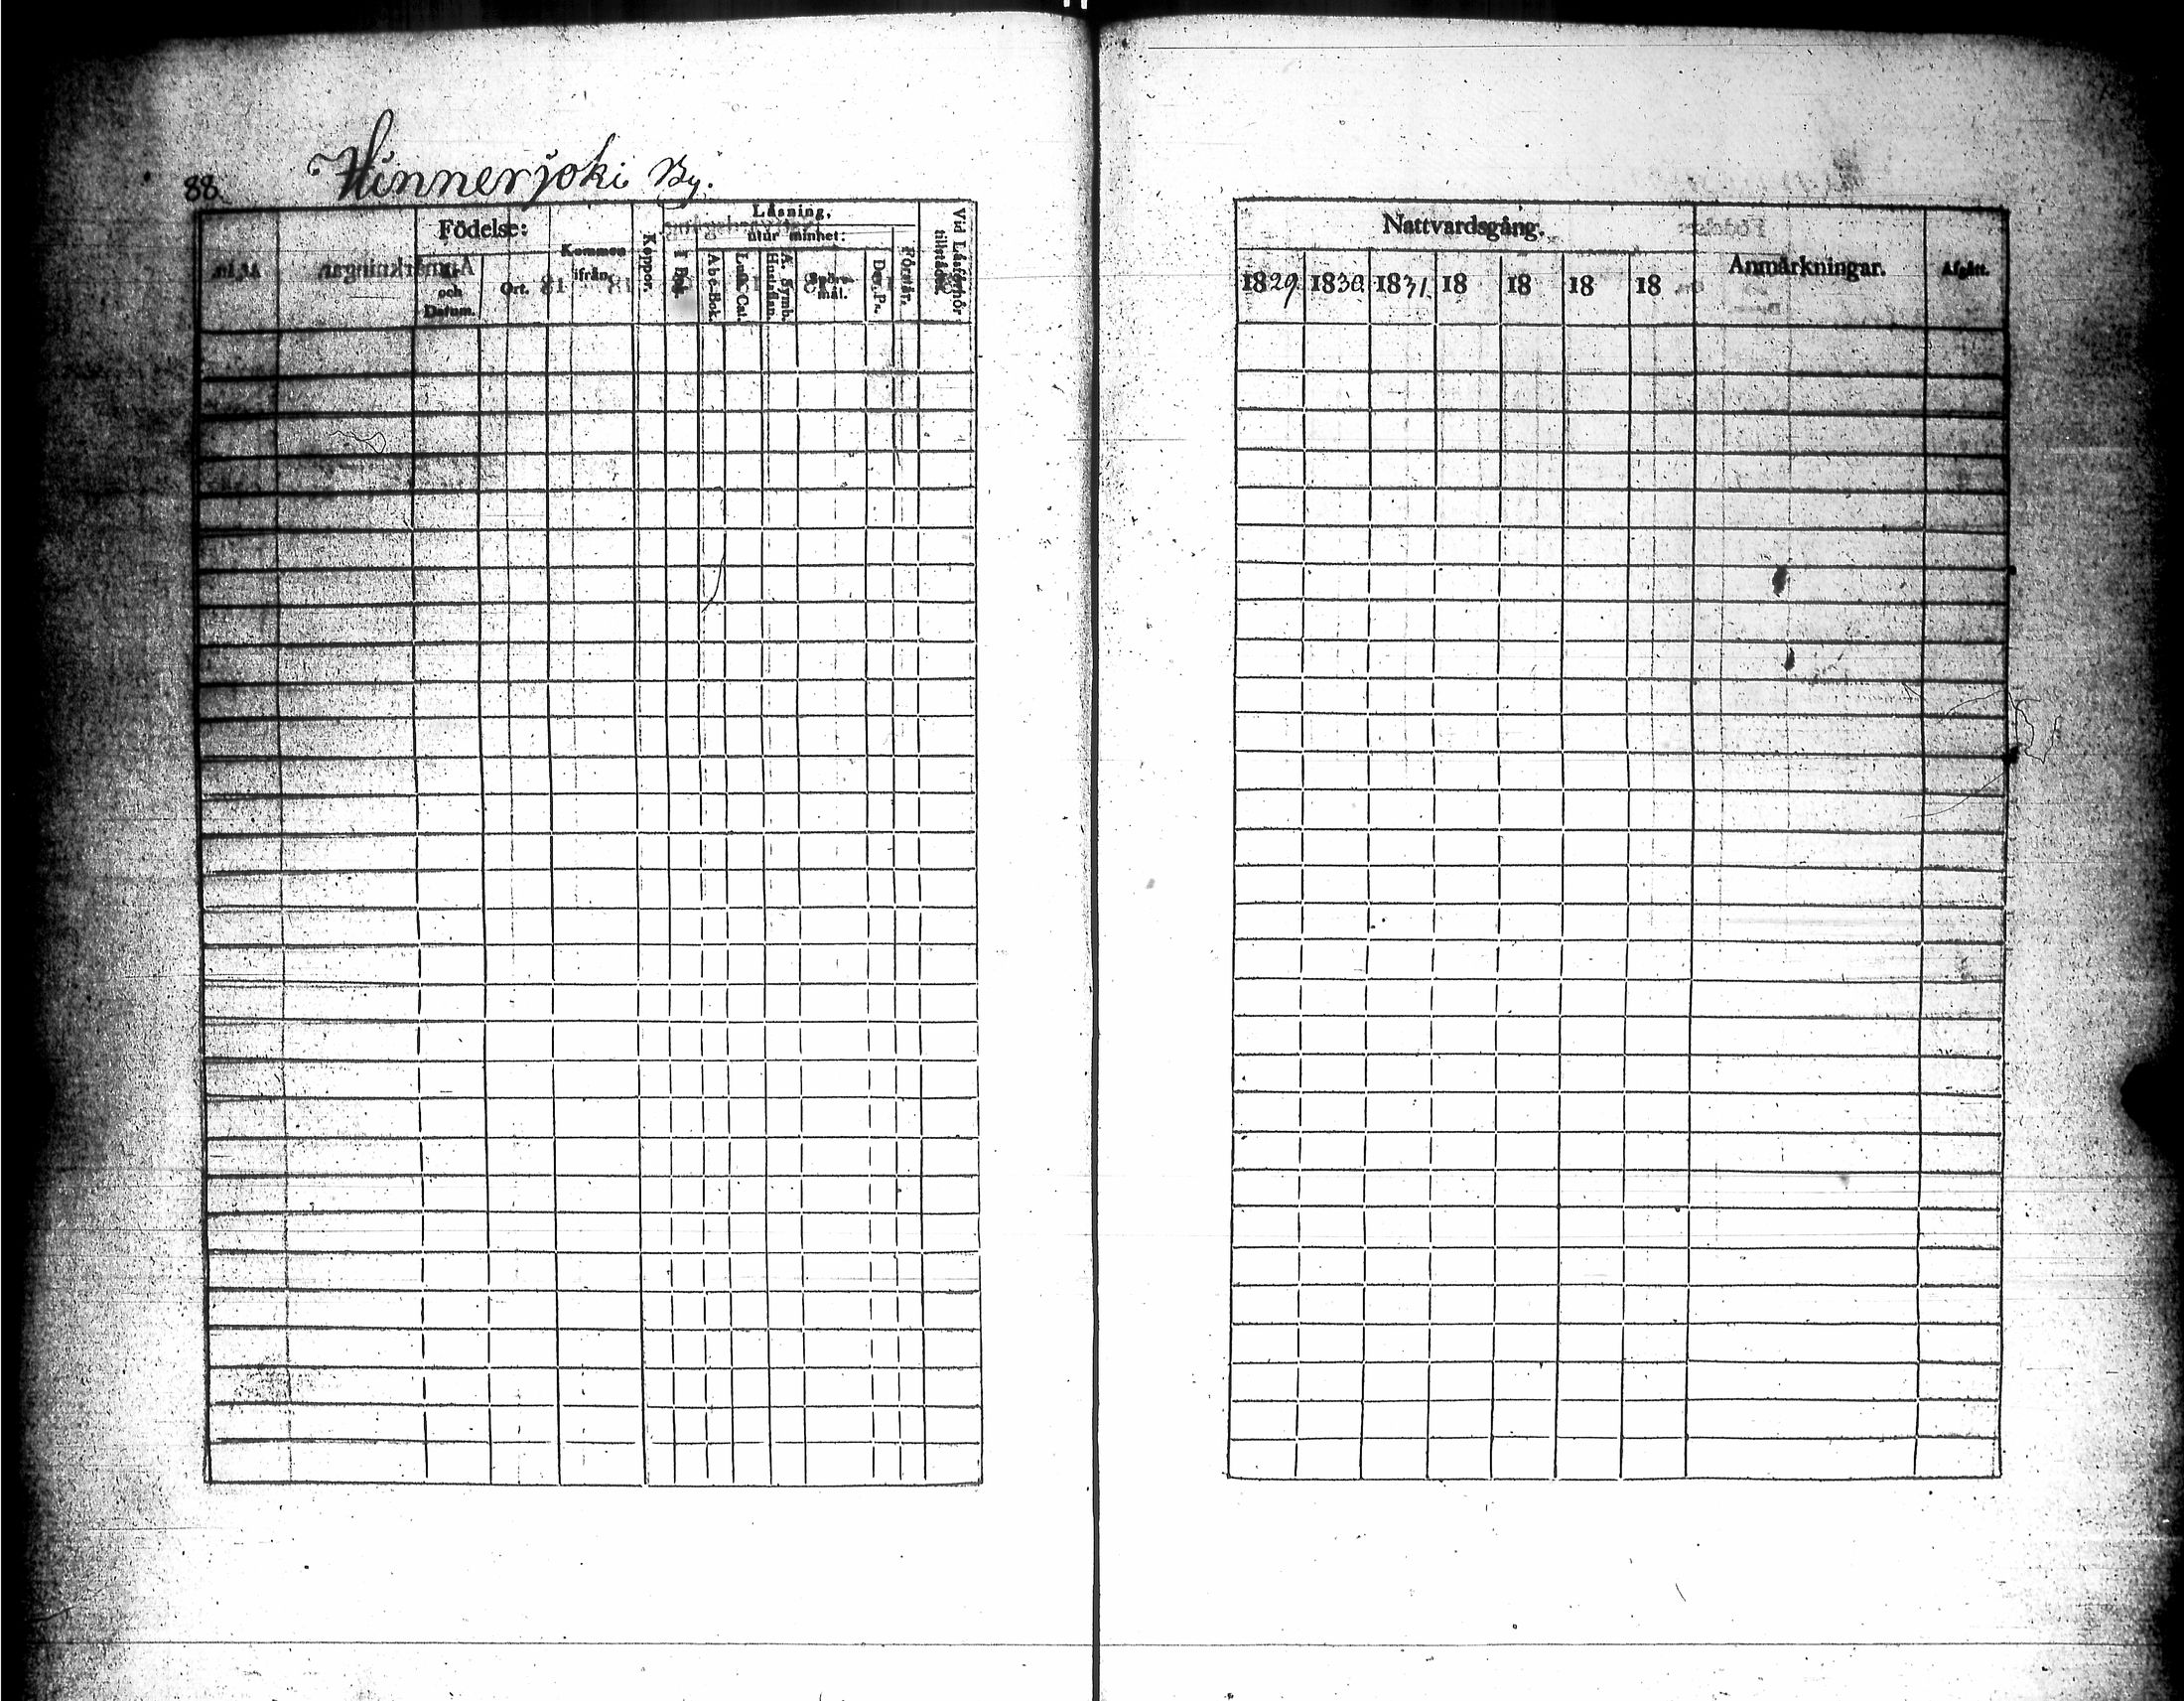 88.
Hinnerjoki By.
Födelse:
och
Datum.
Ort.
Kommen
ifrån
Koppor.
Läsning,
utur minhet:
I Bok.
Abc-Bok.
Luth. Cat.
A. Symb.
Hustaflan.
Spörs-
mål.
Dav. Ps.
Förstår.
Vid Läsförhör
tillstädes.
Nattvardsgång.
1829 1830 1831 18 18 18 18
Anmärkningar.
Afgått.